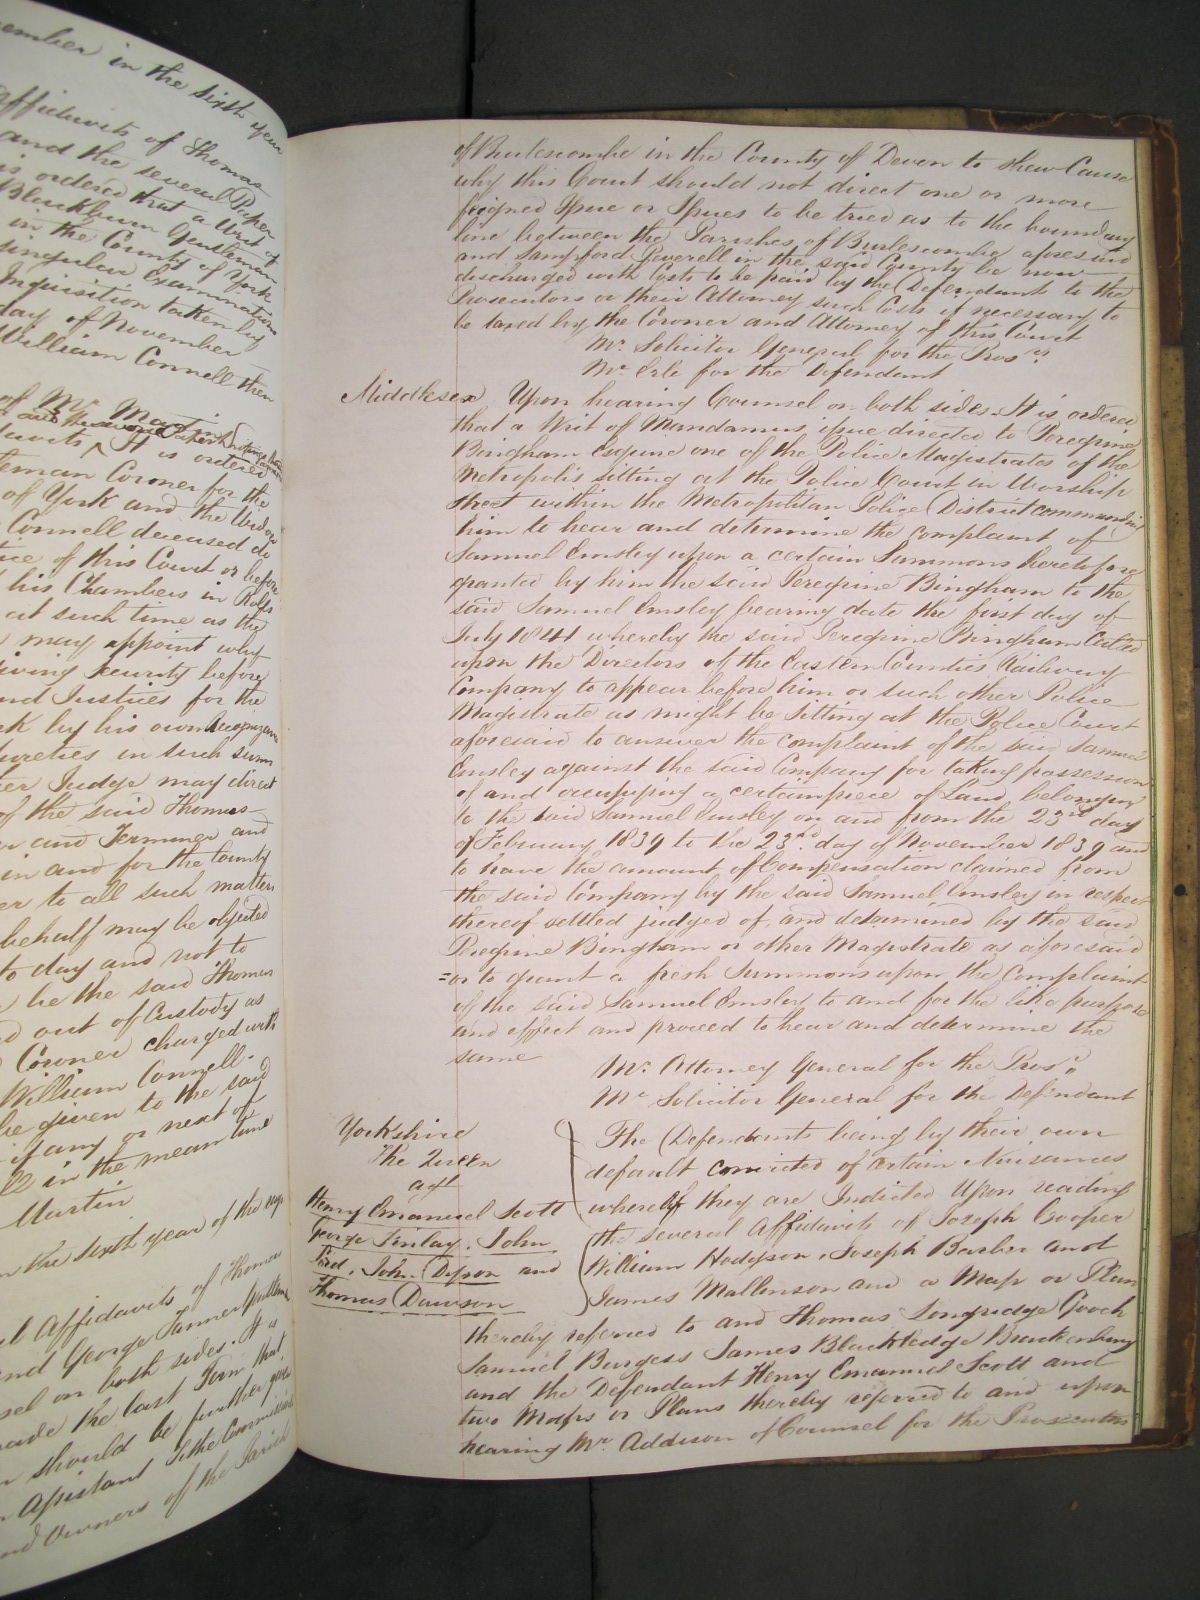 ember in the sixth year
affidavits of Thomas
and the several Paper
is ordered that a Writ of
Blackburn Gentleman
in the County of York
singular Examinations
Inquisition taken by
day of November
William Connell then
of Mr. Martin
and the several Paper Writings
davits It is ordered
tleman Coroner for the
of York and the Widow
Connell deceased do
tice of this Court or before
his Chambers in Rolls
at such time as the
may appoint why
iving security before
nd Justices for the
rk by his own Recognizance
ureties in such sum
er Judge may direct
of the said Thomas
r and Terminer and
in and for the County
er to all such matters
behalf may be objected
to day and not to
be the said Thomas
d out of Custody as
Coroner charged with
William Connell.
be given to the said
if any or next of
ll in the mean time
Martin
n the sixth year of the
al Affidavits of Thomas
nd George Tanner
sel on both sides. It is
ade the last Term that
n should be further
Assistant Tithe Commissi
nd Owners of the Parish
of Burlescombe in the County of Devon to shew Cause
why this Court should not direct one or more
feigned Issue or Issues to be tried as to the boundary
line between the Parishes of Burlescombe aforesaid
and Sampford Peverell in the said County be now
discharged with Costs to be paid by the Defendant to the
Prosecutors or their Attorney such Costs if necessary to
be taxed by the Coroner and Attorney of this Court
Mr. Solicitor General for the Pros rs.
Mr. Erle for the Defendant
Middlesex Upon hearing Counsel on both sides. It is ordered
that a Writ of Mandamus issue directed to Peregrine
Bingham Esquire one of the Police Magistrates of the
Metropolis sitting at the Police Court in Worship
Street within the Metropolitan Police District commanding
him to hear and determine the complaint of
Samuel Emsley upon a certain Summons heretofore
granted by him the said Peregrine Bingham to the
said Samuel Emsley bearing date the first day of
July 1841 whereby the said Peregrine Bingham Called
upon the Directors of the Eastern Counties Railway
Company to appear before him or such other Police
Magistrate as might be sitting at the Police Court
aforesaid to answer the complaint of the said Samuel
Emsley against the said Company for taking possession
of and occupying a certain piece of Land belonging
to the said Samuel Emsley on and from the 23rd day
of February 1839 to the 23rd day of November 1839 and
to have the amount of Compensation claimed from
the said Company by the said Samuel Emsley in respect
thereof settled judged of and determined by the said
Peregrine Bingham or other Magistrate as aforesaid
=or to grant a fresh Summons upon the Complaint
of the said Samuel Emsley to and for the like purpose
and effect and proceed to hear and determine the
same
Mr. Attorney General for the Pros r.
Mr. Solicitor General for the Defendant
Yorkshire
The Queen
agt
Henry Emanuel Scott
George Finlay, John
Bird, John Dyson and
Thomas Dawson
The Defendants being by their own
default convicted of certain Nuisances
whereof they are Indicted Upon reading
the several Affidavits of Joseph Cooper
William Hodgson, Joseph Barber and
James Mallinson and a Map or Plan
thereby referred to and Thomas Longridge Gooch
Samuel Burgess James Blackledge Brackenbury
and the Defendant Henry Emanuel Scott and
two Maps or Plans thereby referred to and upon
hearing Mr. Addison of Counsel for the Prosecutors